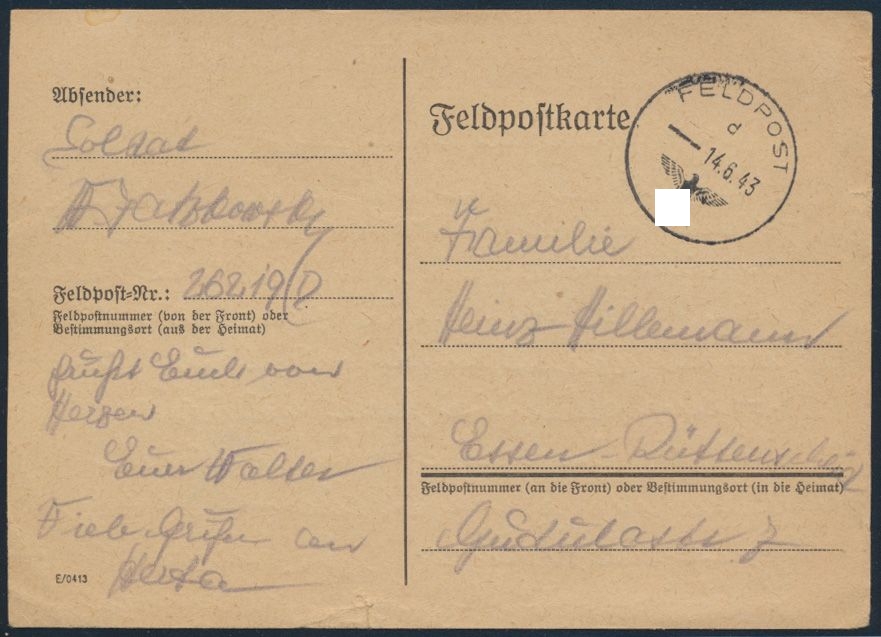 Absender:
Soldat
W Jatzkowski
Feldpost-Nr.: 26219 D
Feldpostnummer (von der Front) oder
Bestimmungsort (aus der Heimat)
grüßt Euch von
Herzen
Euer Walter
Viele Grüße an
Herta
E/0413
Feldpostkarte
FELDPOST
d
14.6.43
Familie
Heinz Hillemann
Essen-Rüttenscheid
Feldpostnummer (an die Front) oder Bestimmungsort (in die Heimat)
Gudulastr 7